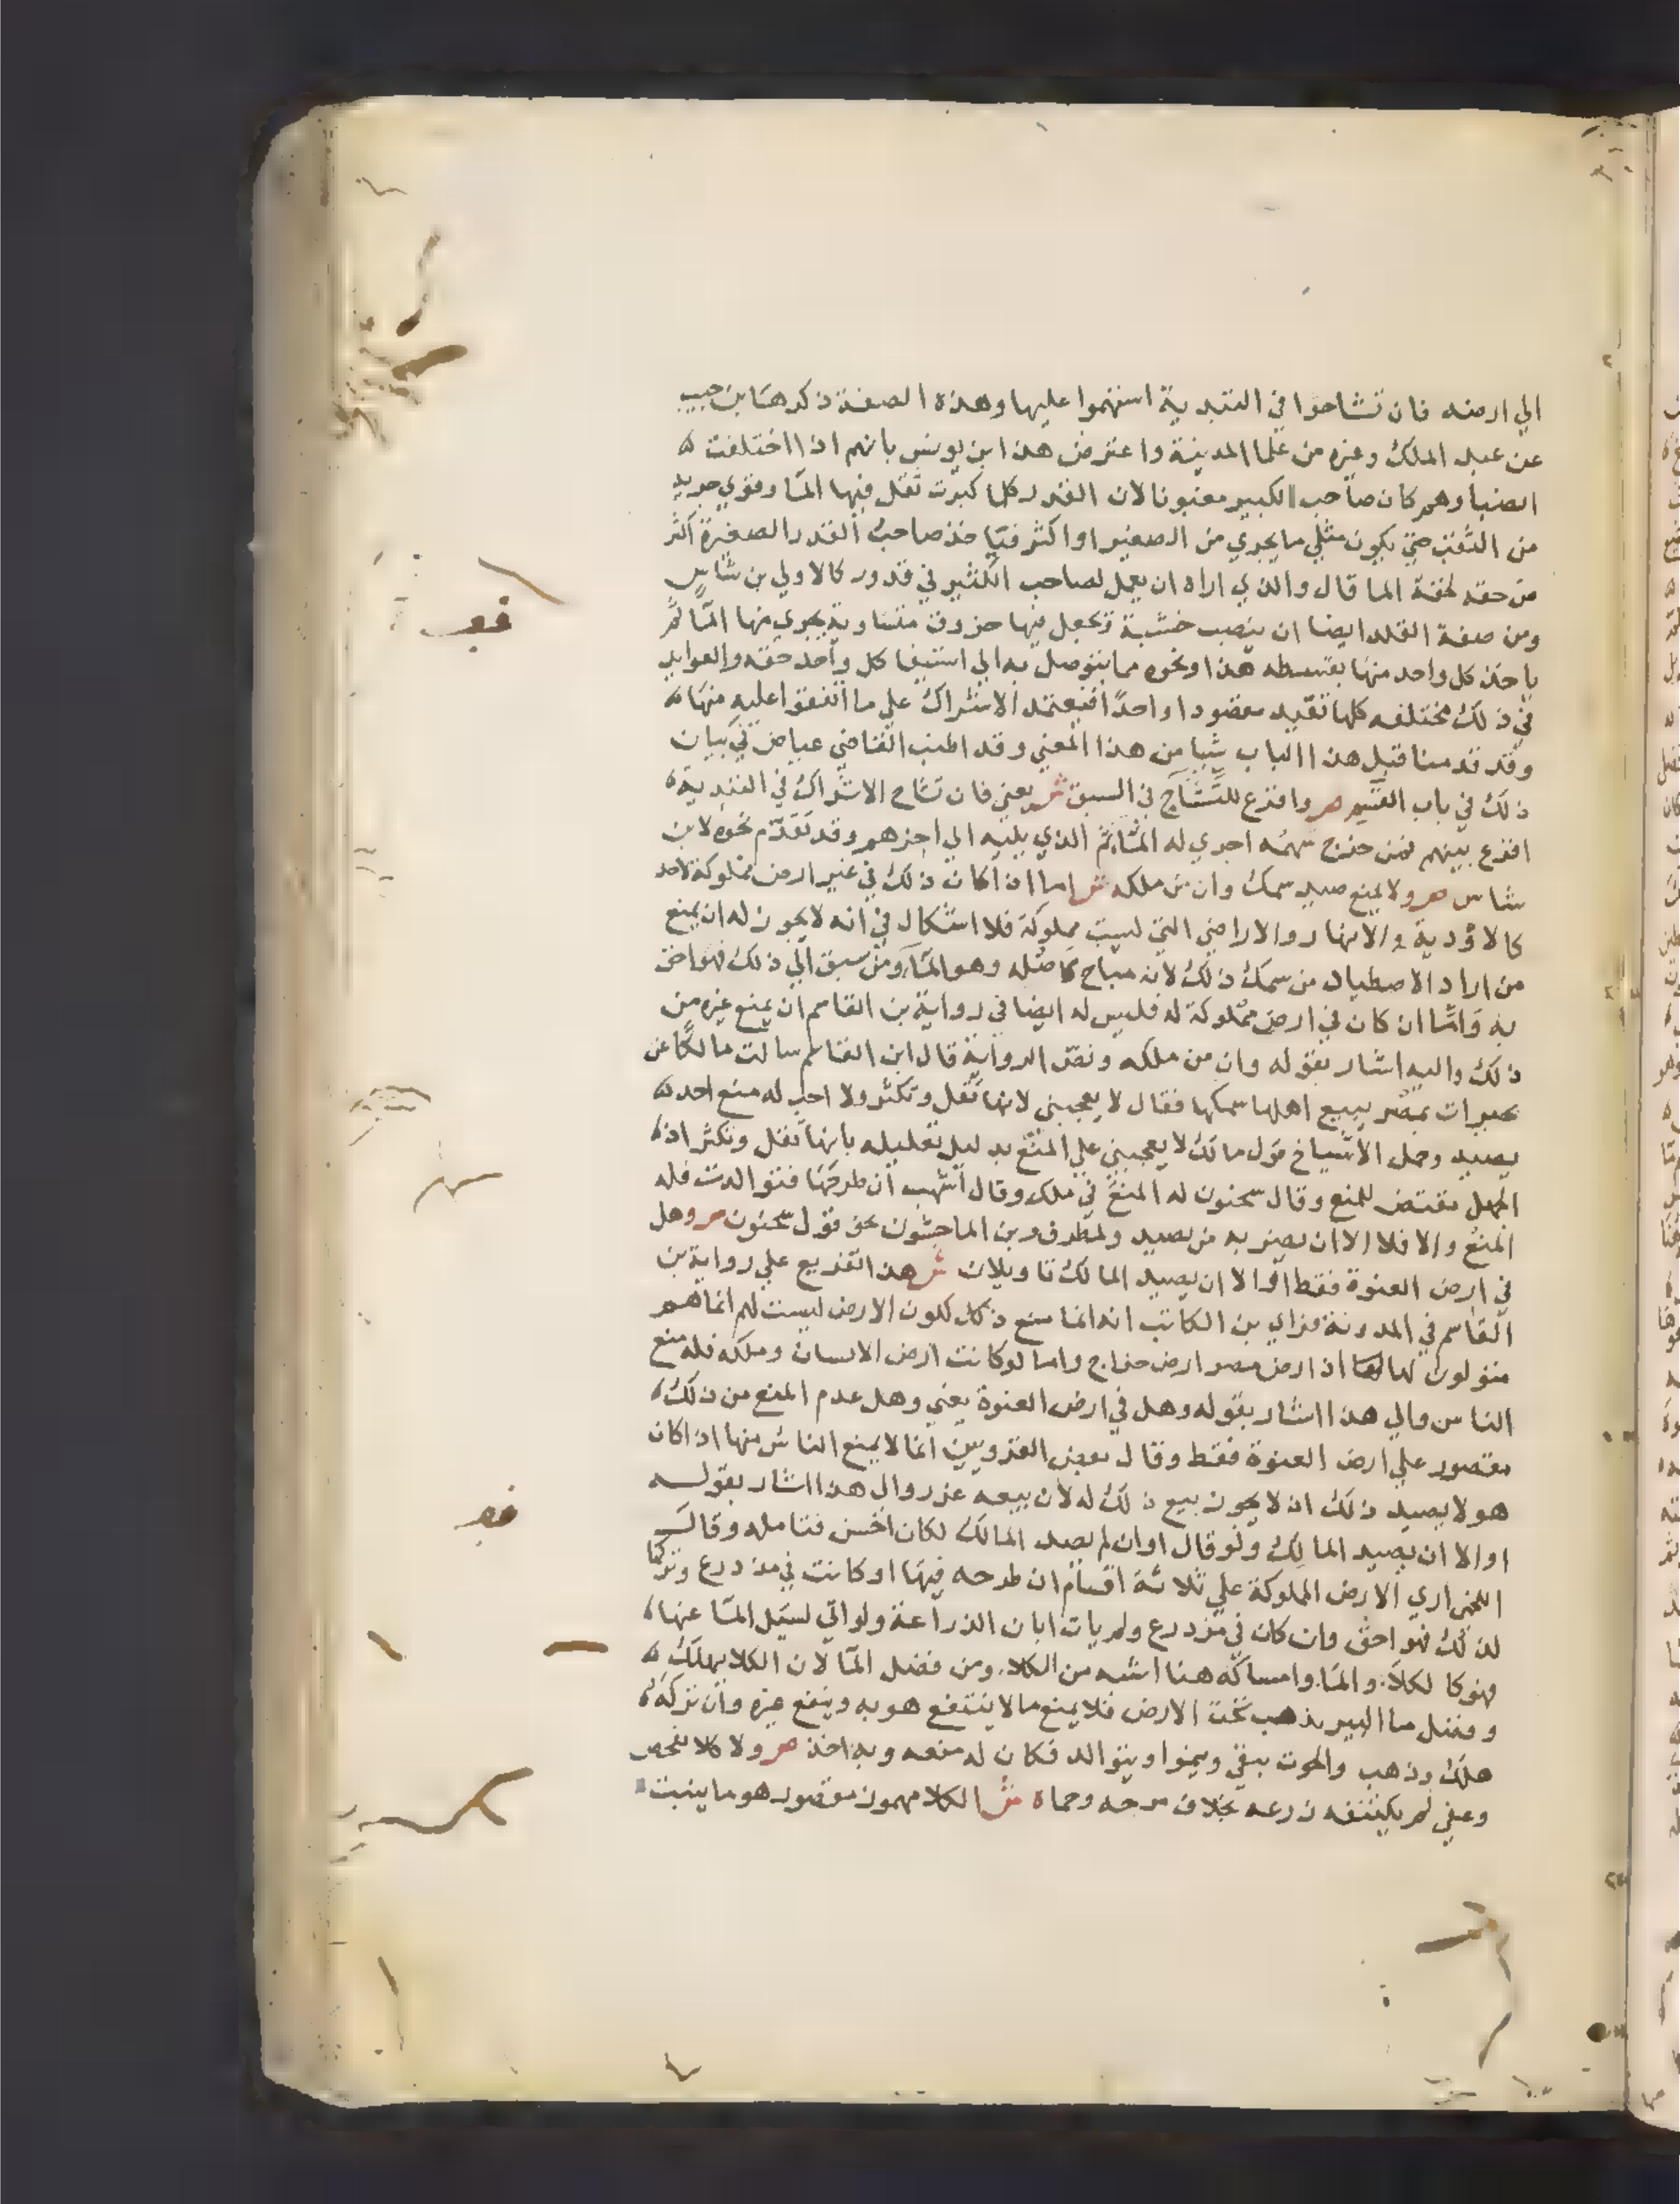 الي ارضه فان تشاحوا في التبدية استهموا عليها وهذه الصفة ذكرها بن حبيب
عن عبد الملك وغيره من علما المدينة واعترض هذا ابن يونس بانهم اذا اختلفت
انصباوهم كان صاحب الكبير مغبونا لان القدر كلما كبرت ثقل فيها الما وقوي جريه
من الثقب حتي يكون مثلي ما يجري من الصغير او اكثر فياخذ صاحب القدر الصغيرة اكثر
من حقه لخفة الما قال والذي اراه ان يعمل لصاحب الكثير في قدور كالاولي بن شاس
ومن صفة القلد ايضا ان ينصب خشبة تجعل فيها خروق متساوية يجري منها الما ثم
ياخذ كل واحد منها بقسطه هذا ونحوه مما يتوصل به الي استيفا كل واحد حقه والعوايد
في ذلك مختلفه كلها تفيد مقصودا واحدا فيعتمد الاشتراك علي ما اتفقوا عليه منها
وقد قدمنا قبل هذا الباب شيا من هذا المعني وقد اطنب القاضي عياض في بيان
ذلك في باب القسم ص واقرع للتشاح في السبق ش يعني فان تشاح الاشتراك في التبدية
اقرع بينهم فمن خرج سهمه اجري له الما ثم الذي يليه الي اخرهم وقد تقدم نحوه لابن
شاس ص ولا يمنع صيد سمك وان من ملكه ش اما اذا كان ذلك في غير ارض مملوكة لاحد
كالاودية والانهار والاراضي التي ليست مملوكة فلا اشكال في انه لا يجوز له ان يمنع
من اراد الاصطياد من سمك ذلك لانه مباح كاصله وهو الما ومن سبق الي ذلك فهو احق
به واما ان كان في ارض مملوكة له فليس له ايضا في رواية بن القاسم ان يمنع غيره من
ذلك واليه اشار بقوله وان من ملكه ونص الرواية قال ابن القاسم سالت مالكا عن
بحيرات بمصر يبيع اهلها سمكها فقال لا يعجبني لانها تقل وتكثر ولا احب له منع احد
يصيد وحمل الاشياخ قول مالك لا يعجبني علي المنع بدليل تعليله بانها تقل وتكثر اذ
الجهل مقتض للمنع وقال سحنون له المنع في ملكه وقال اشهب ان طرحها فتوالدت فله
المنع والا فلا الا ان يضر به من يصيد ولمطرف وبن الماجشون نحو قول سحنون ص وهل
في ارض العنوة فقط او الا ان يصيد المالك تاويلان ش هذا تفريع علي رواية بن
القاسم في المدونة فراي بن الكاتب انه انما منع ذلك لكون الارض ليست لهم انما هم
متولون لها اذ ارض مصر ارض خراج واما لو كانت ارض الانسان وملكه فله منع
الناس والي هذا اشار بقوله وهل في ارض العنوة يعني وهل عدم المنع من ذلك
مقصور علي ارض العنوة فقط وقال بعض القرويين انما لا يمنع الناس منها اذا كان
هو لا يصيد ذلك اذ لا يجوز بيع ذلك له لان بيعه غرر والي هذا اشار بقوله
او الا ان يصيد المالك ولو قال او ان لم يصد المالك لكان احسن فتامله وقال
اللخمي اري الارض المملوكة علي ثلاثة اقسام ان طرحه فيها او كانت في مزدرع وتركها
لذلك فهو احق وان كان في مزدرع ولم يات ابان الزراعة ولو اتي لسيل الما عنها
فهو كالكلا والما وامساكه هنا اشبه من الكلا ومن فضل الما لان الكلا يهلك
وفضل ما البير يذهب تحت الارض فلا يمنع ما لا ينتفع هو به وينفع غيره وان تركه
هلك وذهب والحوت يبقي وينموا ويتوالد فكان له منعه وبه اخذ ص ولا كلا بفحص
وعفي لم يكتنفه زرعه بخلاف مرجه وحماه ش الكلا مهموز مقصور هو ما ينبت